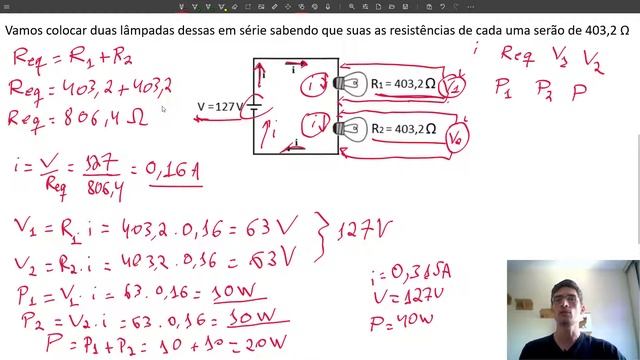 Vamos colocar duas lâmpadas dessas em série sabendo que suas as resistências de cada uma serão de 403,2 Ω
Req = R1 + R2
Req = 403,2 + 403,2
Req = 806,4 Ω
i = V/Req = 127/806,4 = 0,16A
V = 127 V
i
i
i
i
R1 = 403,2 Ω
V1
i
R2 = 403,2 Ω
V2
i
i Req V1 V2
P1 P2 P
V1 = R1.i = 403,2 . 0,16 = 63 V
V2 = R2.i = 403,2 . 0,16 = 63 V
127V
P1 = V1.i = 63.0,16 = 10W
P2 = V2.i = 63.0,16 = 10W
P = P1 + P2 = 10 + 10 = 20W
i = 0,315A
V = 127V
P = 40W